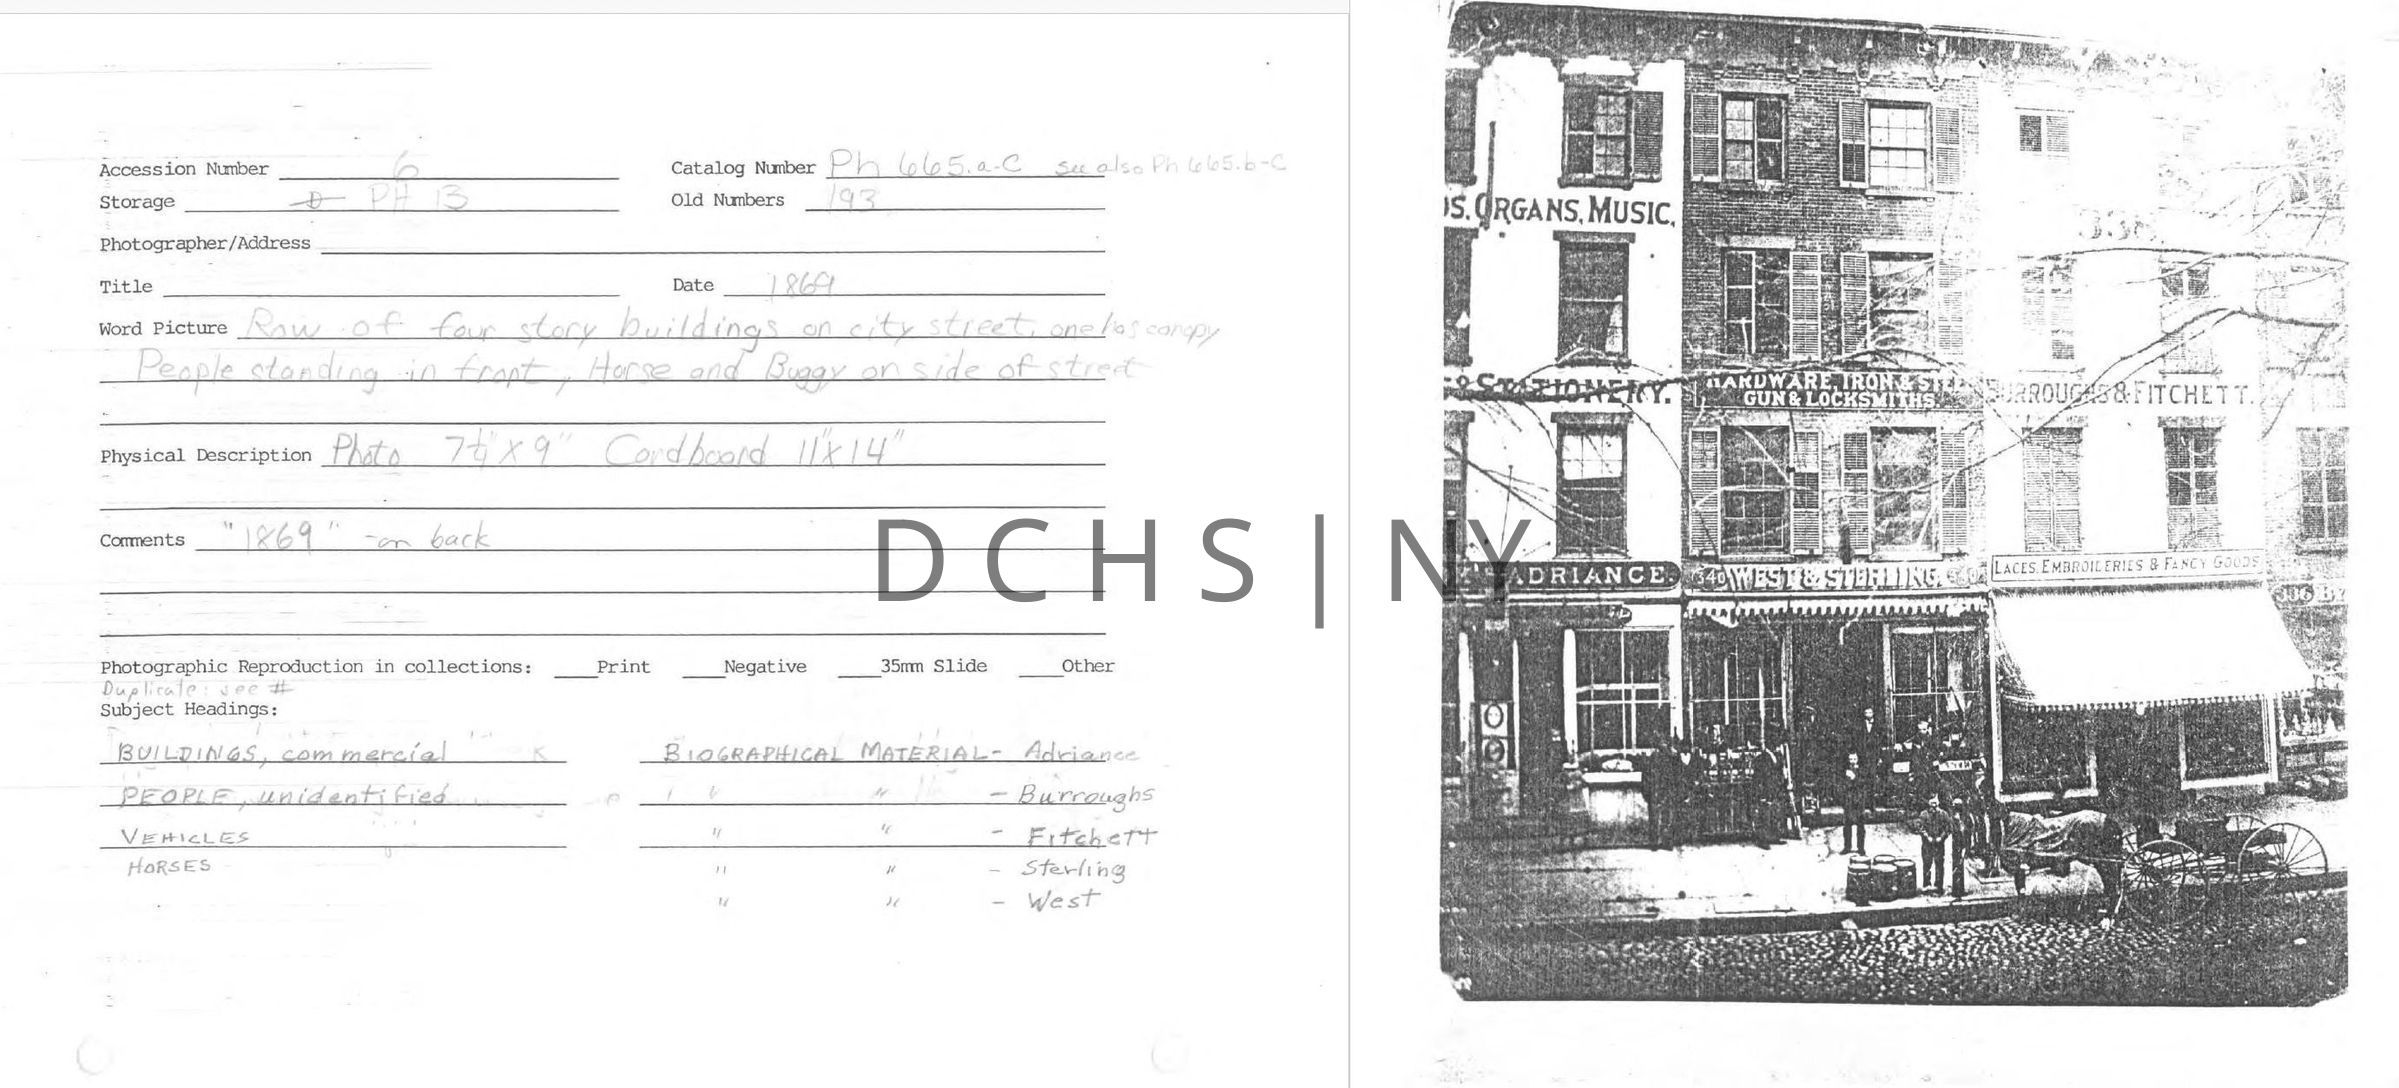 Accession Number 6
Catalog Number Ph 665.a-C see also Ph 665.b-C
Storage D PH 13
Old Numbers 193
Photographer/Address
Title
Date 1869
Word Picture Row of four story buildings on city street, one has canopy
People standing in front, Horse and Buggy on side of street
Physical Description Photo 7¼" X 9" Cardboard 11" X 14"
Comments "1869" - on back
Photographic Reproduction in collections: ___Print ___Negative ___35mm Slide ___Other
Duplicate: see #
Subject Headings:
BUILDINGS, commercial
BIOGRAPHICAL MATERIAL - Adriance
PEOPLE, unidentified
" " - Burroughs
VEHICLES
" " - Fitchett
HORSES
" " - Sterling
" " - West
DCHS|NY
S. ORGANS, MUSIC.
338
& STATIONERY.
HARDWARE, IRON & STEE
GUN & LOCKSMITHS.
BURROUGHS & FITCHETT.
ADRIANCE.
340 WEST & STERLING.
LACES, EMBROILERIES & FANCY GOODS
336